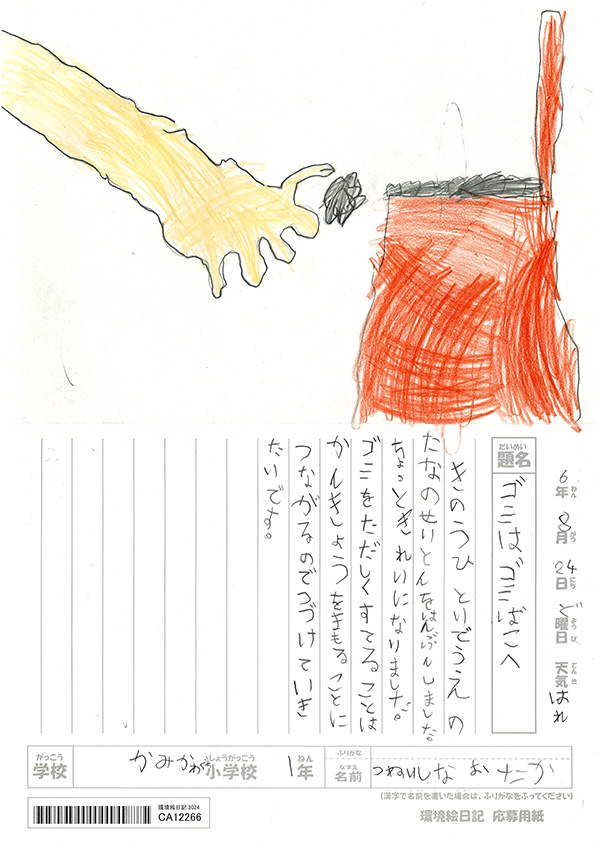 6年 8月 24日 ど曜日 天気 はれ
ねん がつ にち ようび てんき
だいめい
題名
ゴミはゴミばこへ
きのうひとりでうえの
たなのせりとんをはんぶんしました。
ちょっときれいになりました。
ゴミをただしくすてることは
かんきしょうをまもることに
つながるのでつづけていき
たいです。
がっこう
学校
かみかがや
しょうがっこう
小学校
1年
ねん
ふりがな
なまえ
名前
おたか
(漢字で名前を書いた場合は、ふりがなをふってください)
環境絵日記2024
CA12266
環境絵日記 応募用紙